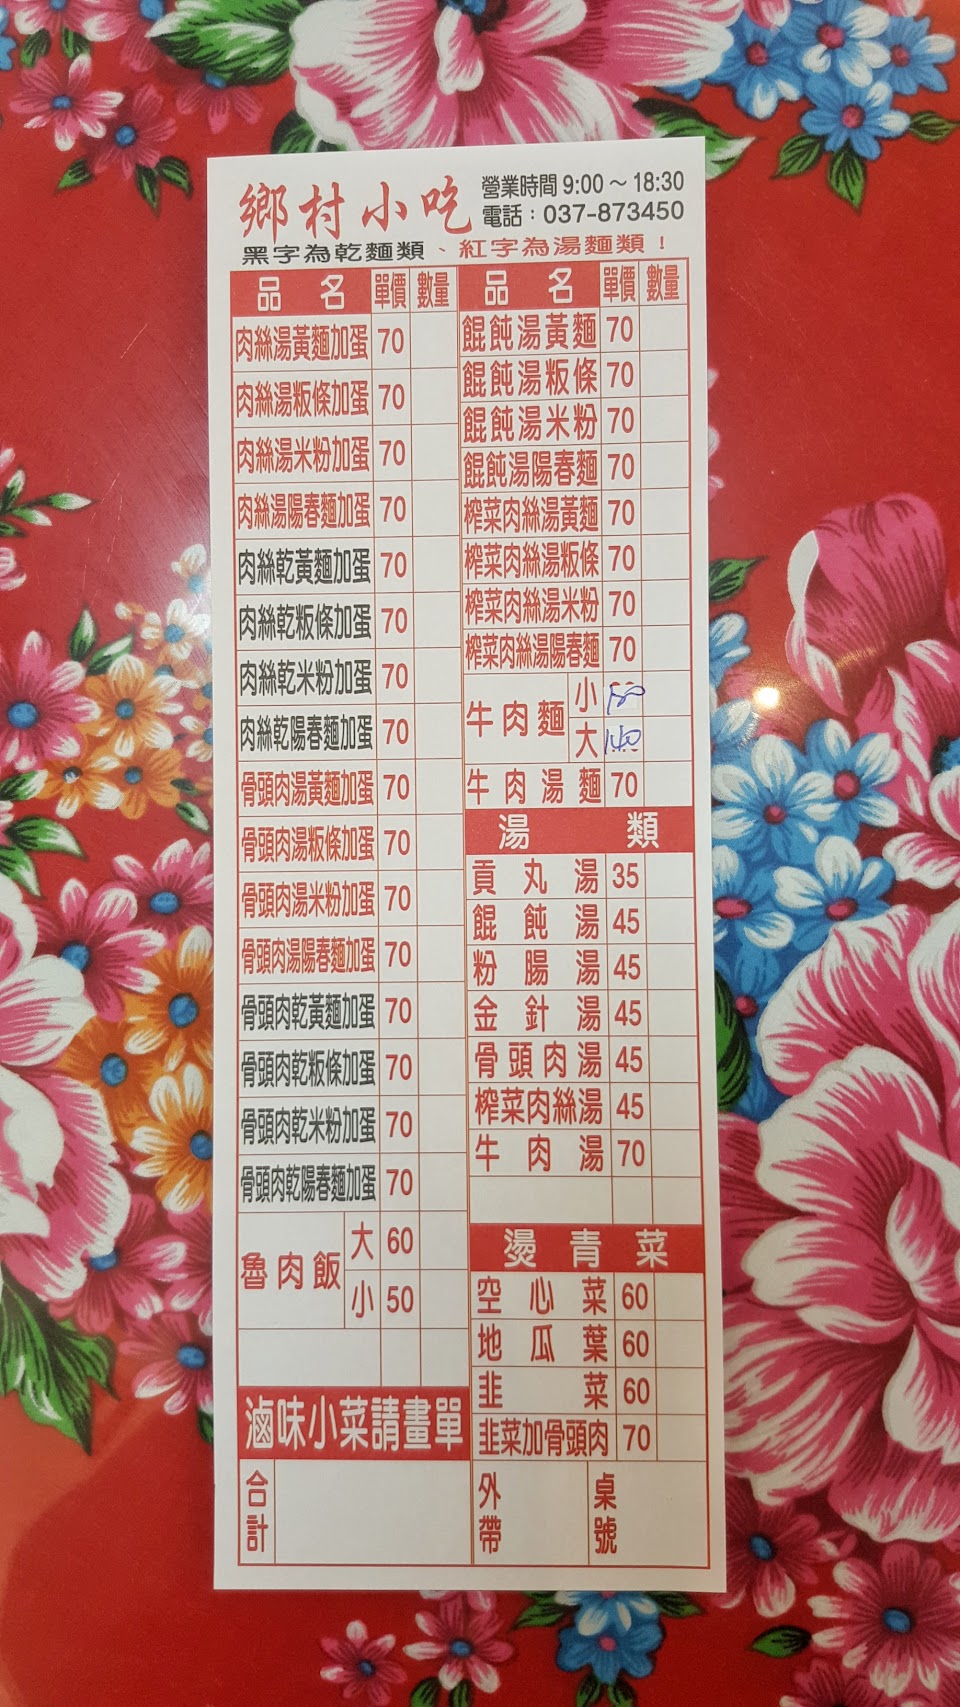 鄉村小吃
營業時間 9:00～18:30
電話：037-873450
黑字為乾麵類、紅字為湯麵類！
品名 單價 數量
肉絲湯黃麵加蛋 70
肉絲湯粄條加蛋 70
肉絲湯米粉加蛋 70
肉絲湯陽春麵加蛋 70
肉絲乾黃麵加蛋 70
肉絲乾粄條加蛋 70
肉絲乾米粉加蛋 70
肉絲乾陽春麵加蛋 70
骨頭肉湯黃麵加蛋 70
骨頭肉湯粄條加蛋 70
骨頭肉湯米粉加蛋 70
骨頭肉湯陽春麵加蛋 70
骨頭肉乾黃麵加蛋 70
骨頭肉乾粄條加蛋 70
骨頭肉乾米粉加蛋 70
骨頭肉乾陽春麵加蛋 70
魯肉飯 大 60
小 50
滷味小菜請畫單
合計
品名 單價 數量
餛飩湯黃麵 70
餛飩湯粄條 70
餛飩湯米粉 70
餛飩湯陽春麵 70
榨菜肉絲湯黃麵 70
榨菜肉絲湯粄條 70
榨菜肉絲湯米粉 70
榨菜肉絲湯陽春麵 70
牛肉麵 小
大 140
牛肉湯麵 70
湯類
貢丸湯 35
餛飩湯 45
粉腸湯 45
金針湯 45
骨頭肉湯 45
榨菜肉絲湯 45
牛肉湯 70
燙青菜
空心菜 60
地瓜葉 60
韭菜 60
韭菜加骨頭肉 70
外帶 桌號